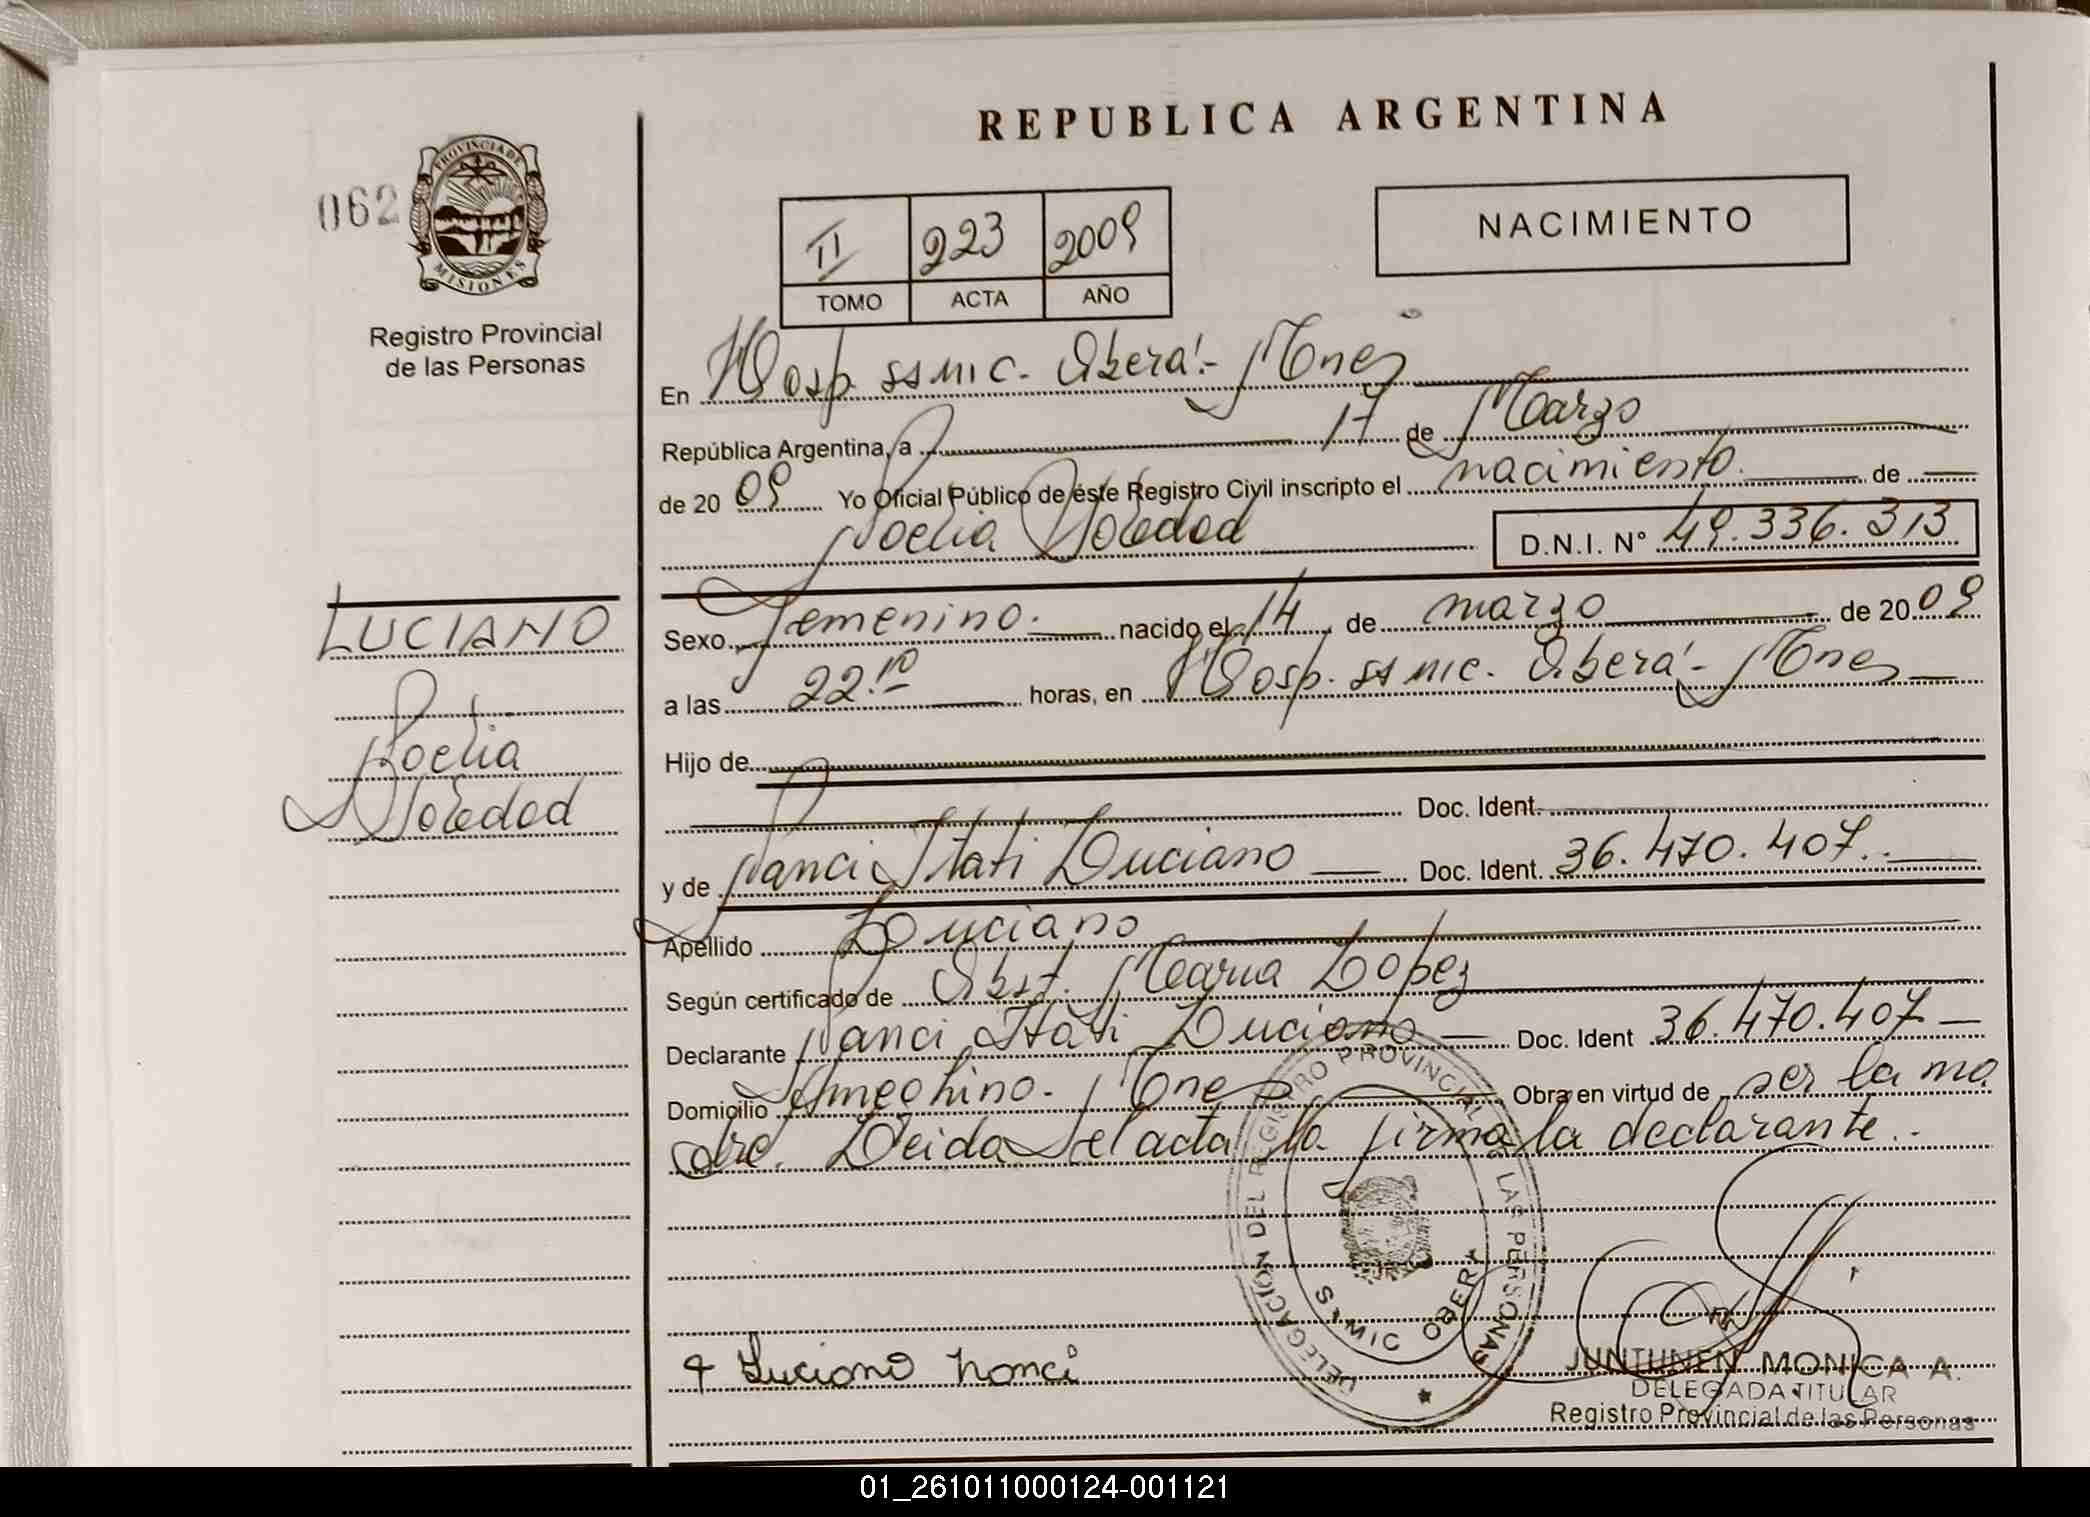 REPUBLICA ARGENTINA
062
PROVINCIA DE
MISIONES
Registro Provincial
de las Personas
II 223 2009
TOMO ACTA AÑO
NACIMIENTO
En Hosp. SSMIC. Oberá - Mnes
República Argentina, a 17 de Marzo
de 2009 Yo Oficial Público de éste Registro Civil inscripto el nacimiento. de
Noelia Soledad D.N.I. Nº 49.336.313
LUCIANO
Noelia
Soledad
Sexo Femenino. nacido el 14 de marzo de 2009
a las 22.10 horas, en Hosp. SSMIC. Oberá - Mnes
Hijo de
Doc. Ident.
y de Nanci Itati Luciano Doc. Ident. 36.470.407.
Apellido Luciano
Según certificado de Obst. Maria Lopez
Declarante Nanci Itati Luciano Doc. Ident 36.470.407
Domicilio Ameghino - Mnes Obra en virtud de ser la ma
dre. Leida el acta la firma la declarante.
DELEGACIÓN DEL REGISTRO PROVINCIAL DE LAS PERSONAS
SAMIC OBERA
Luciano nanci
JUNTUNEN MONICA A.
DELEGADA TITULAR
Registro Provincial de las Personas
01_261011000124-001121